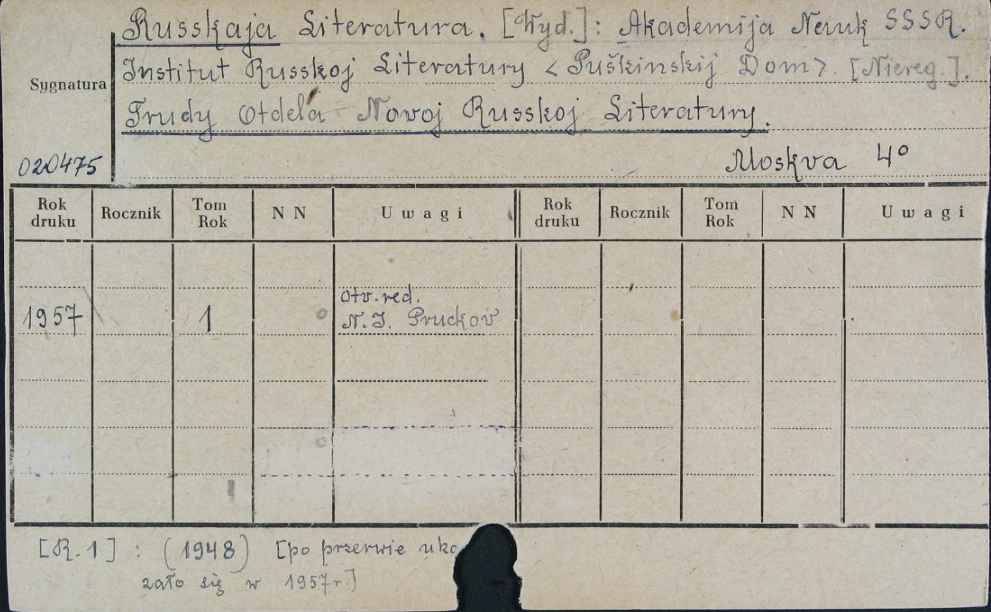 Russkaja Literatura. [Wyd.]: Akademija Nauk SSSR.
Institut Russkoj Literatury <Puškinskij Dom>. [Niereg.].
Trudy Otdela Novoj Russkoj Literatury.
Sygnatura
020475
Moskva 4°
Rok druku Rocznik Tom Rok N N Uwagi Rok druku Rocznik Tom Rok N N Uwagi
otv. red.
1957 1 N. I. Pruckov
[R. 1] : (1948) [po przerwie uka
zało się w 1957 r.]